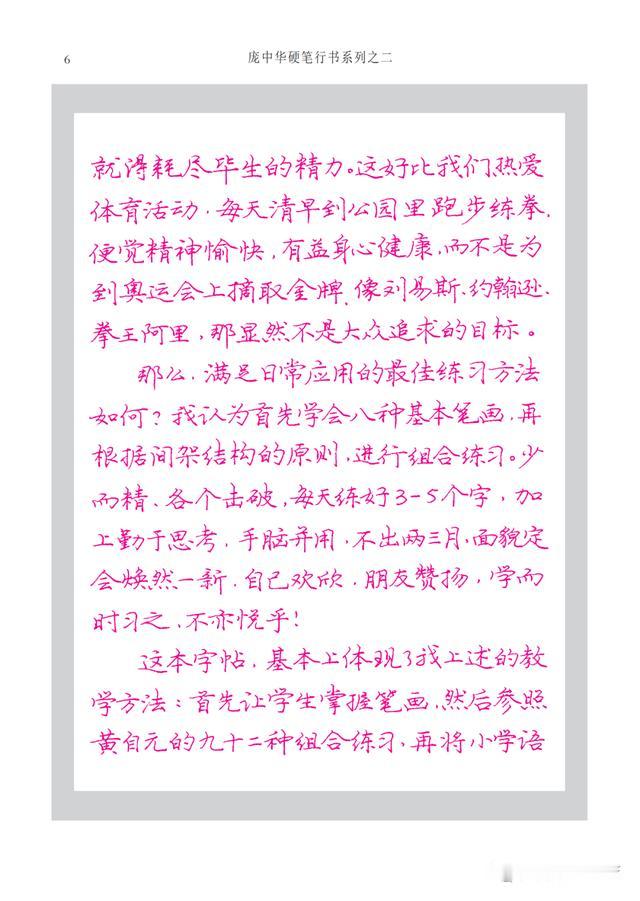 6
庞中华硬笔行书系列之二
就得耗尽毕生的精力。这好比我们热爱
体育活动，每天清早到公园里跑步练拳，
便觉精神愉快，有益身心健康，而不是为
到奥运会上摘取金牌，像刘易斯、约翰逊、
拳王阿里，那显然不是大众追求的目标。
那么，满足日常应用的最佳练习方法
如何？我认为首先学会八种基本笔画，再
根据间架结构的原则，进行组合练习。少
而精、各个击破，每天练好3-5个字，加
上勤于思考，手脑并用，不出两三月，面貌定
会焕然一新，自己欢欣，朋友赞扬，学而
时习之，不亦悦乎！
这本字帖，基本上体现了我上述的教
学方法：首先让学生掌握笔画，然后参照
黄自元的九十二种组合练习，再将小学语